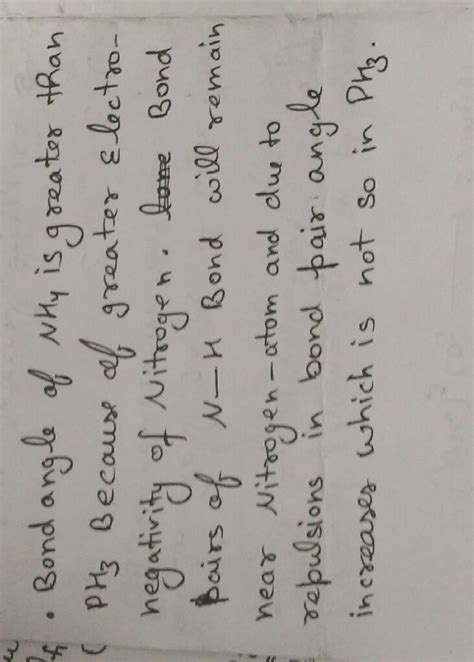 . Bond angle of NH4 is greater than
PH3 Because of greater Electro-
negativity of Nitrogen. lone Bond
pairs of N-H Bond will remain
near Nitrogen-atom and due to
repulsions in bond pair angle
increases which is not so in PH3.